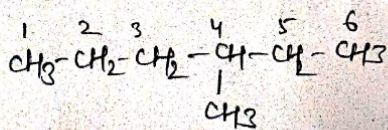 1 2 3 4 5 6
CH3-CH2-CH2-CH-CH2-CH3
|
CH3